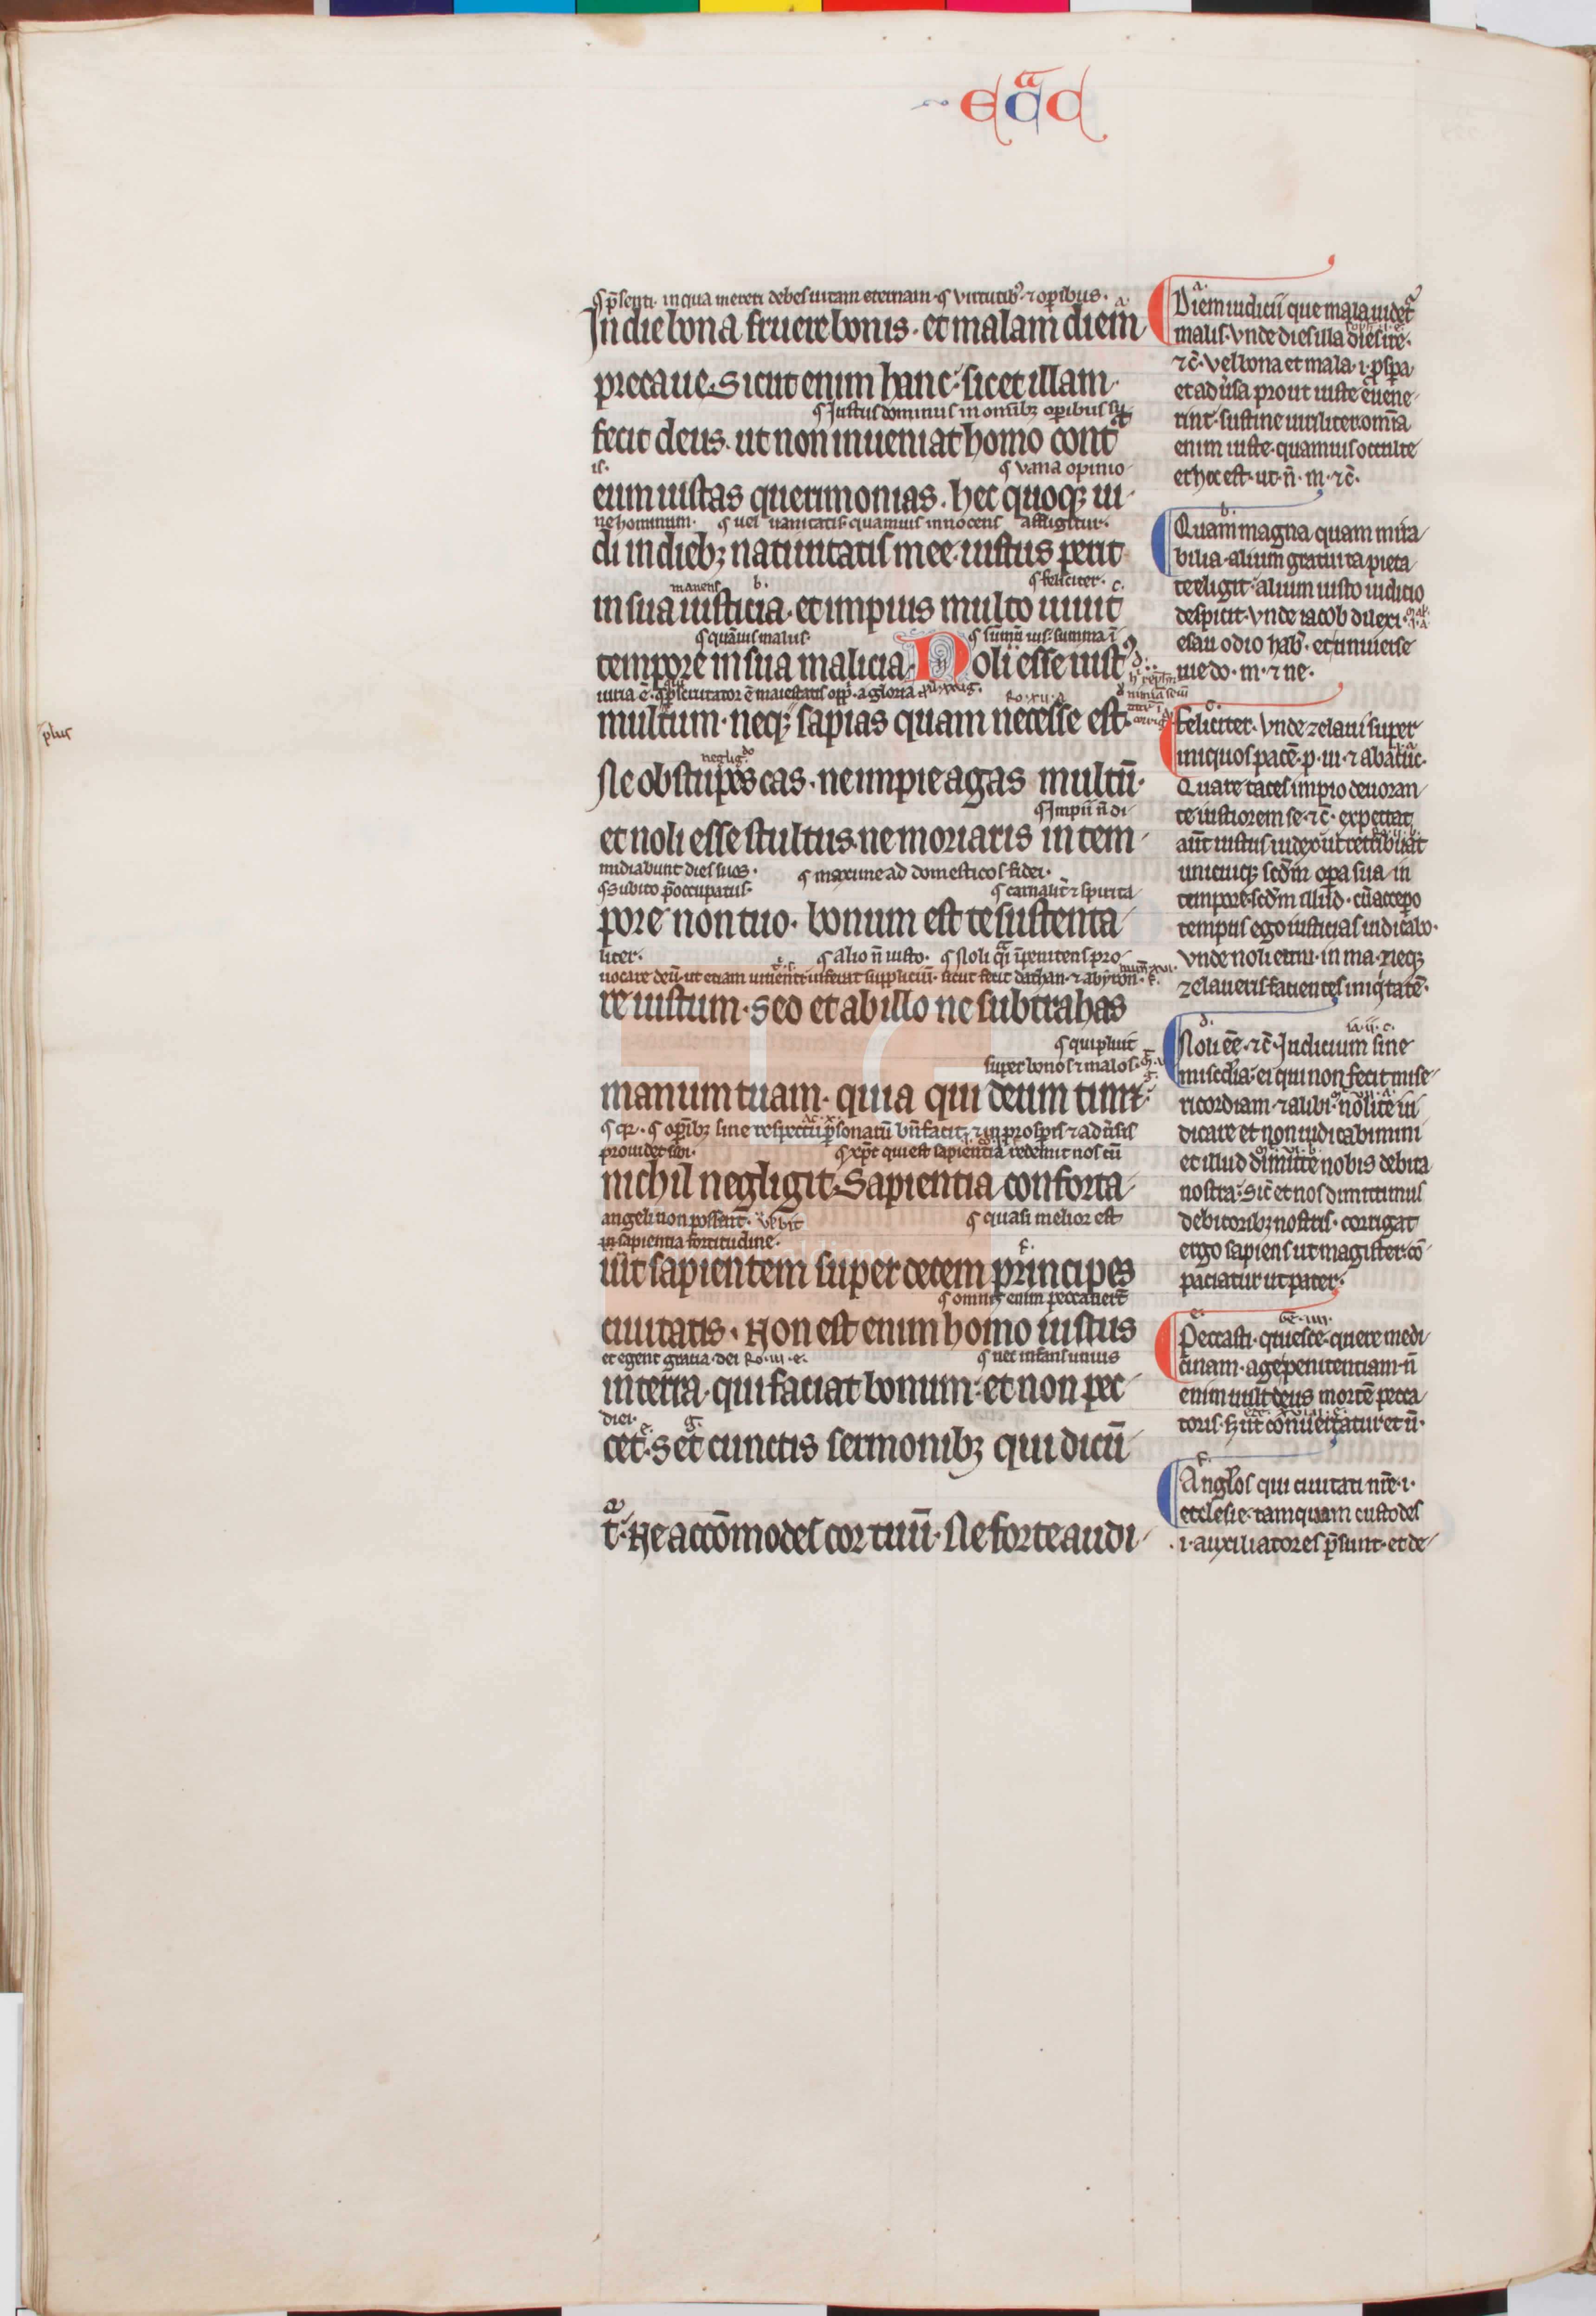 ecc̄cl
p̄senti· in qua mereri debes uitam eternam· virtutib⁹· ⁊ op̄ibus·
In die bona fruere bonis· et malam diem
precaue· Sicut enim hanc· sic et illam·
Justus dominus in omīb; op̄ibus su
fecit deus· ut non inueniat homo cont̄
is·
vana opinio
eum iustas querimonias· hec quoq; ui
ne hominum· uel uanitatis quamuis innocens affligitur·
di in dieb; natiuitatis mee· iustus perit
manens b· feliciter· c·
in sua iusticia· et impius multo uiuit
quāuis malus· sūmū ius· summa ī
tempore in sua malicia· Noli esse iust⁹
iuria ē·
multum· neq; sapias quam necesse est·
plus
neglig̅do
Ne obstupescas· ne impie agas multū·
Impii n̄ di
et noli esse stultus· ne moriaris in tem
midiabunt dies suos· maxime ad domesticos fidei·
Subito p̄occupatus· carnalit̄ ⁊ spirita
pore non tuo· bonum est te sustenta
liter· alio n̄ iusto· Noli
uocare deū· ut etiam uiuenti inferat suppliciū· sicut fecit dathan· ⁊ abyron·
re iustum· Sed et ab illo ne subtrahas
qui pluit
super bonos ⁊ malos·
manum tuam· quia qui deum timet·
op̄ib; sine respectu p̄sonarū
prouidet sibi· xp̄c qui est sapientia redemit nos cū
nichil negligit· Sapientia conforta
angeli non possent· quasi melior est
in sapientia fortitudine·
uit sapientem super decem principes
omnes enim peccauerūt
ciuitatis· Non est enim homo iustus
et egent gratia dei Ro· iii· e· nec infans unius
in terra· qui faciat bonum· et non pec
diei·
cet· Set cunctis sermonib; qui dicū
t̄· Ne accōmodes cor tuū· Ne forte audi
Diem iudicii que mala uidet̄
malis· Vnde dies illa dies ire·
⁊c̄· vel bona et mala· i· p̄spa
et adu̾sa prout iuste euene
rint· sustine uiriliter omīa
enim iuste quamuis occulte
et hoc est· ut· n̄· m· ⁊c̄·
b·
Quam magna quam mira
bilia· alium gratuita pieta
te eligit· alium iusto iudicio
despicit· vnde iacob dilexi·
esau odio hab̄· et uniuerse
uie do· m· ⁊ ne·
c·
Feliciter· vnde zelaui super
iniquos pacē· p· ui· ⁊ abacuc·
Quare taces impio deuoran
te iustiorem se· ⁊c̄· expectat
aūt iustus iudex ut retribuat
unicuiq; scd̄m opa sua· in
tempore· scd̄m illud· cū accepo
tempus ego iusticias indicabo·
Vnde noli emu· in ma· neq;
zelaueris facientes iniq̄tatē·
d·
Noli eē· ⁊c̄· Iudicium sine
miscdīa· ei qui non fecit mise
ricordiam· ⁊ alibi· nolite iu
dicare et non iudicabimini
et illud dimitte nobis debita
nostra· sic̄ et nos dimittimus
debitorib; nostris· corrigat
ergo sapiens ut magister· cō
paciatur ut pater·
e·
Peccasti· quiesce· quere medi
cinam· age penitentiam· n̄
enim uult deus mortē pecca
toris· s; ut conuertatur et u̅·
f·
Angłos qui ciuitati nr̄e· i·
ecclesie· tamquam custodes
i· auxiliatores p̄sunt· et de